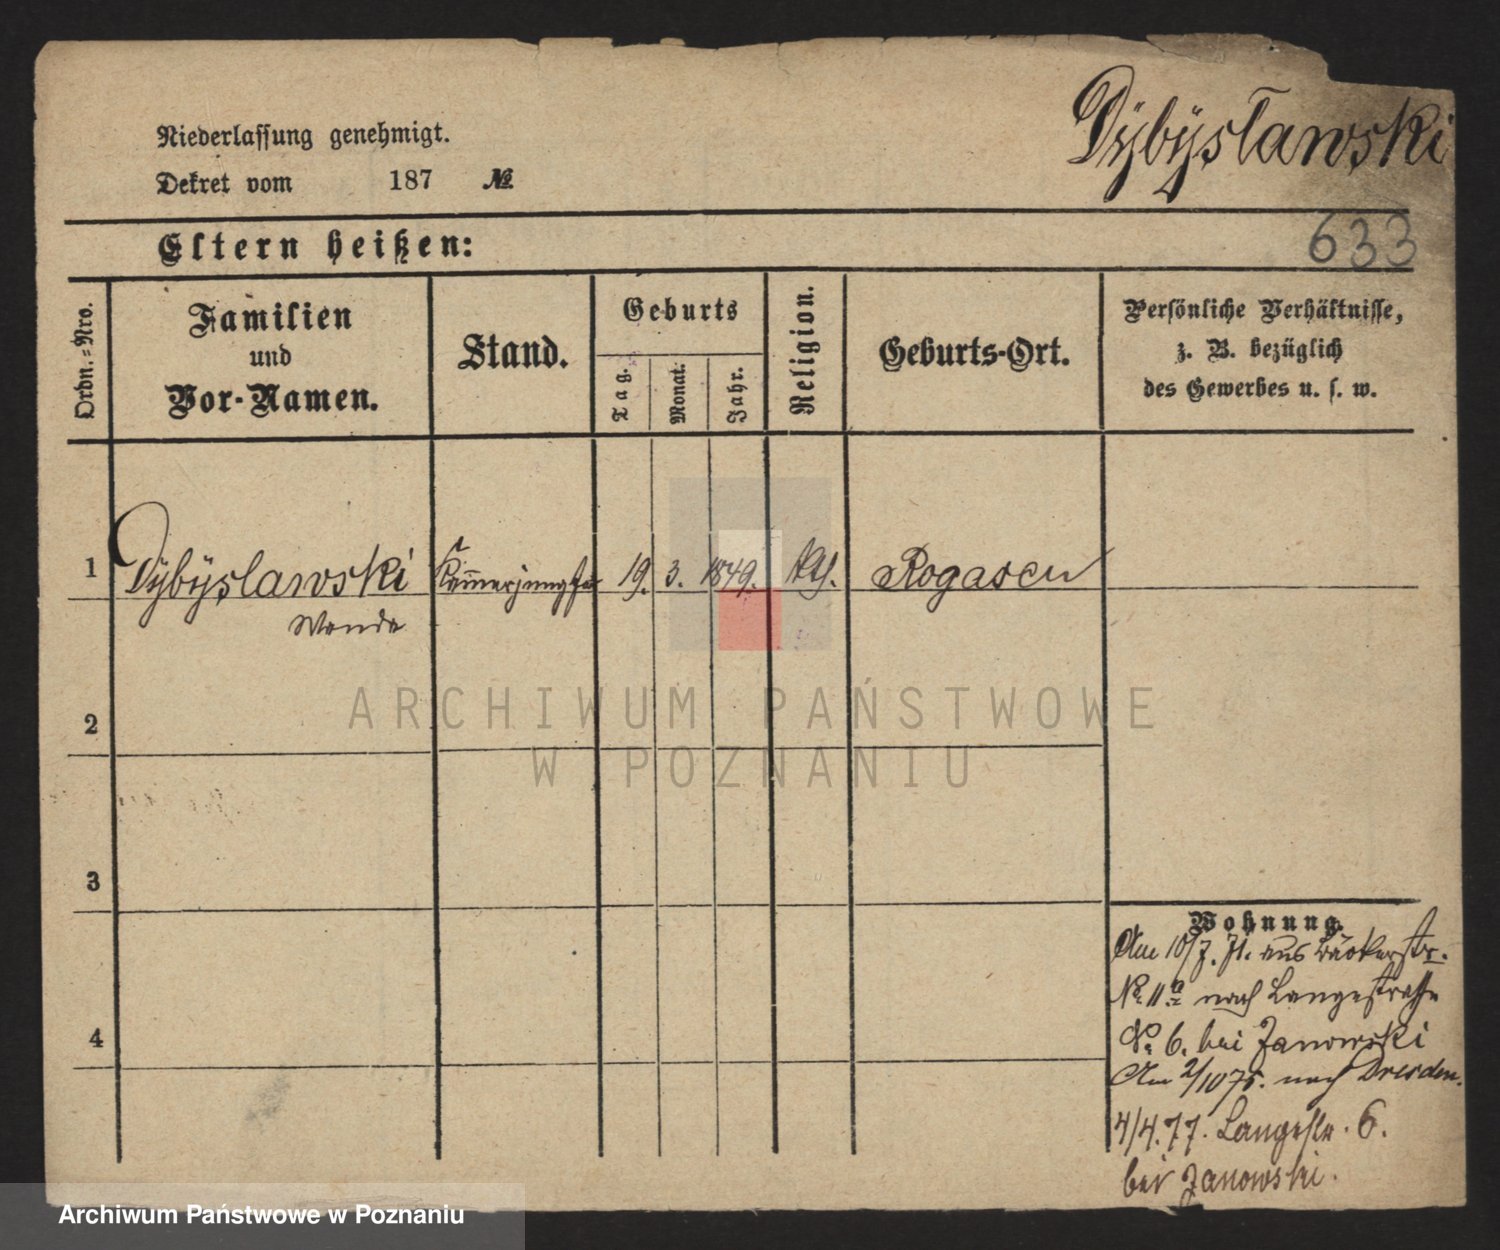 Dÿbÿslawski
Niederlassung genehmigt.
Dekret vom 187 №
633
Eltern heißen:
Ordn.=Nro.
Familien
und
Vor-Namen.
Stand.
Geburts
Tag.
Monat.
Jahr.
Religion.
Geburts-Ort.
Persönliche Verhältnisse,
z. B. bezüglich
des Gewerbes u. s. w.
1 Dÿbÿslawski Kam̅erjungfer 19. 3. 1849. kth. Rogasen
Wanda
2
3
4
Wohnung.
Am 10/7. 71. aus Bäckerstr.
No 11a nach Langestraße
No 6. bei Janowski
Am 2/10 75. nach Dresden.
4/4.77. Langestr. 6.
bei Janowski.
ARCHIWUM PAŃSTWOWE
W POZNANIU
Archiwum Państwowe w Poznaniu